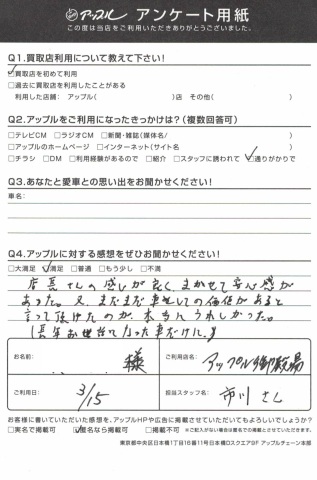 アップル アンケート用紙
この度は当店をご利用いただきありがとうございました。
Q1.買取店利用について教えて下さい!
☑買取店を初めて利用
□過去に買取店を利用したことがある
利用した店舗: アップル( )店 その他( )
Q2.アップルをご利用になったきっかけは?(複数回答可)
□テレビCM □ラジオCM □新聞・雑誌(媒体名/ )
□アップルのホームページ □インターネット(サイト名 )
□チラシ □DM □利用経験があるので □紹介 □スタッフに誘われて ☑通りがかりで
Q3.あなたと愛車との思い出をお聞かせください!
車名:
Q4.アップルに対する感想をぜひお聞かせください!
□大満足 ☑満足 □普通 □もう少し □不満
店長さんの感じが良く、まかせて安心感が
あった。又、まだまだ車としての価値があると
言って頂けたのが、本当にうれしかった。
(長年お世話になった車だけに。)
お名前: 様
ご利用店名: アップル御殿場
ご利用日: 3/15
担当スタッフ名: 市川さん
お客様に書いていただいた感想を、アップルHPや広告に掲載させていただいてもよろしいでしょうか?
□実名で掲載可 ☑匿名なら掲載可 □掲載不可 ※ご記入がない場合は匿名での掲載とさせていただきます。
東京都中央区日本橋1丁目16番11号日本橋Dスクエア9F アップルチェーン本部